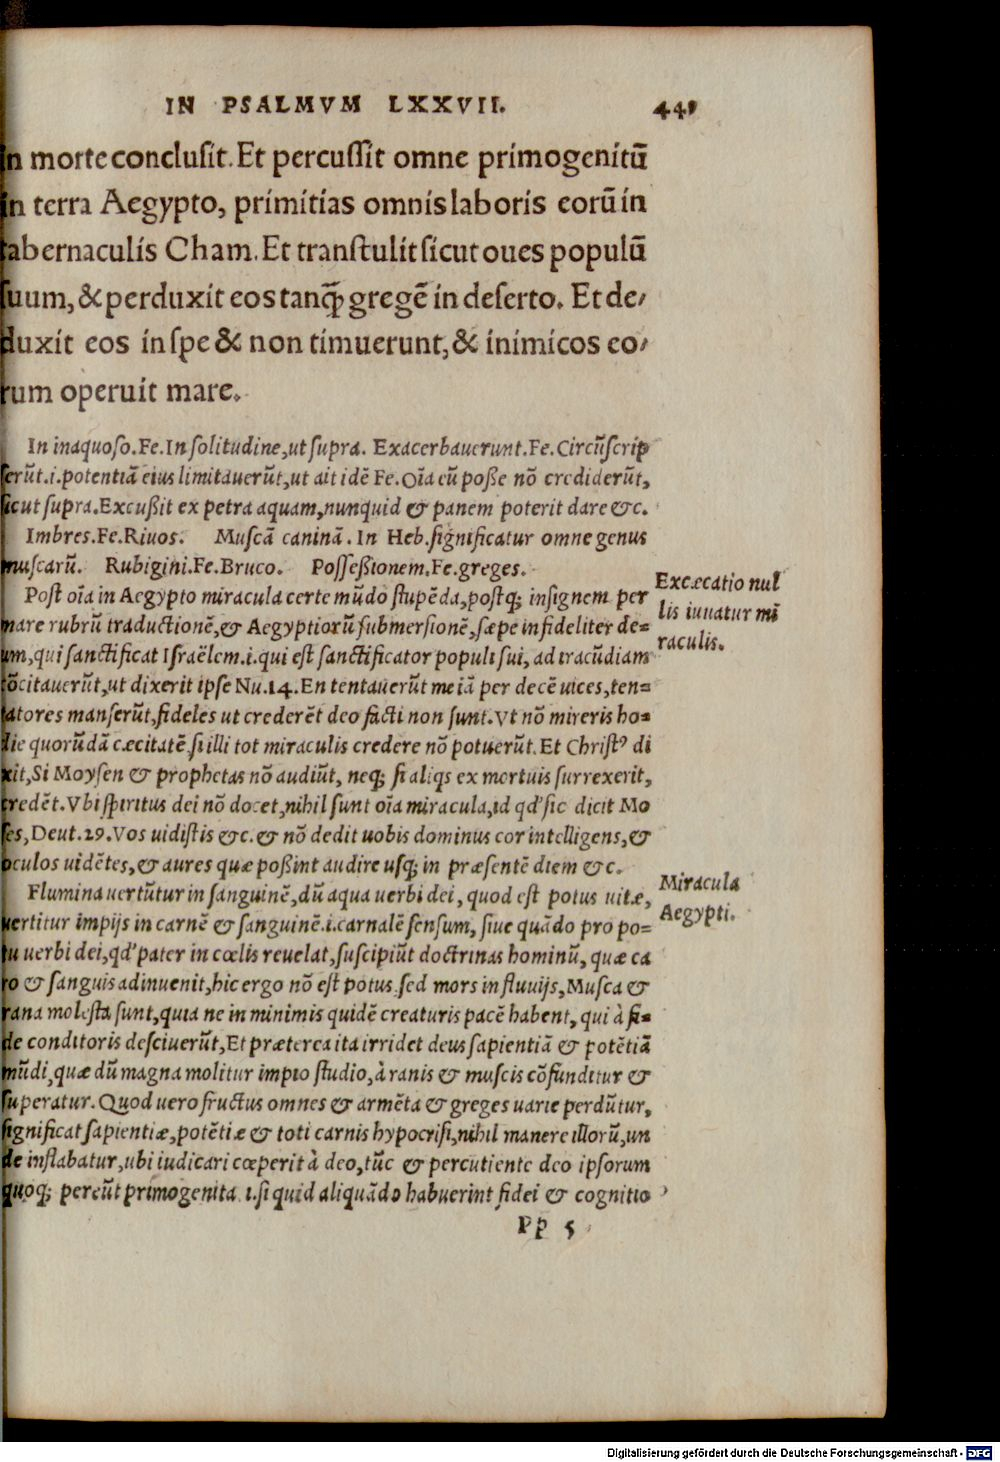 IN PSALMVM LXXVII. 441
in morte conclusit. Et percussit omne primogenitū
in terra Aegypto, primitias omnis laboris eorū in
tabernaculis Cham. Et transtulit sicut oues populū
suum, & perduxit eos tanq̄ gregē in deserto. Et de/
duxit eos in spe & non timuerunt, & inimicos eo/
rum operuit mare.
In inaquoso. Fe. In solitudine, ut supra. Exacerbauerunt. Fe. Circūscrip
serūt. i. potentiā eius limitauerūt, ut ait idē Fe. Oīa eū posse nō crediderūt,
sicut supra. Excussit ex petra aquam, nunquid & panem poterit dare &c.
Imbres. Fe. Riuos. Muscā caninā. In Heb. significatur omne genus
muscarū. Rubigini. Fe. Bruco. Possessionem. Fe. greges.
Post oīa in Aegypto miracula certe mūdo stupēda, postq; insignem per
mare rubrū traductionē, & Aegyptiorū submersionē, sæpe infideliter de=
um, qui sanctificat Israëlem. i. qui est sanctificator populi sui, ad iracūdiam
cōcitauerūt, ut dixerit ipse Nu. 14. En tentauerūt me iā per decē uices, ten=
tatores manserūt, fideles ut crederēt deo facti non sunt. Vt nō mireris ho=
die quorūdā cæcitatē, si illi tot miraculis credere nō potuerūt. Et Christ⁹ di
xit, Si Moysen & prophetas nō audiūt, neq; si aliqs ex mortuis surrexerit,
credēt. Vbi spiritus dei nō docet, nihil sunt oīa miracula, id qd' sic dicit Mo
ses, Deut. 29. Vos uidistis &c. & nō dedit uobis dominus cor intelligens, &
oculos uidētes, & aures quæ possint audire usq; in præsentē diem &c.
Flumina uertūtur in sanguinē, dū aqua uerbi dei, quod est potus uitæ,
uertitur impijs in carnē & sanguinē. i. carnalē sensum, siue quādo pro po=
tu uerbi dei, qd' pater in cœlis reuelat, suscipiūt doctrinas hominū, quæ ca
ro & sanguis adinuenit, hic ergo nō est potus sed mors in fluuijs, Musca &
rana molesta sunt, quia ne in minimis quidē creaturis pacē habent, qui à fi=
de conditoris desciuerūt, Et præterea ita irridet deus sapientiā & potētiā
mūdi, quæ dū magna molitur impio studio, à ranis & muscis cōfunditur &
superatur. Quod uero fructus omnes & armēta & greges uarie perdūtur,
significat sapientiæ, potētiæ & toti carnis hypocrisi, nihil manere illorū, un
de inflabatur, ubi iudicari cœperit à deo, tūc & percutiente deo ipsorum
quoq; pereūt primogenita .i. si quid aliquādo habuerint fidei & cognitio
Pp 5
Excæcatio nul
lis iuuatur mi
raculis.
Miracula
Aegypti.
Digitalisierung gefördert durch die Deutsche Forschungsgemeinschaft - DFG